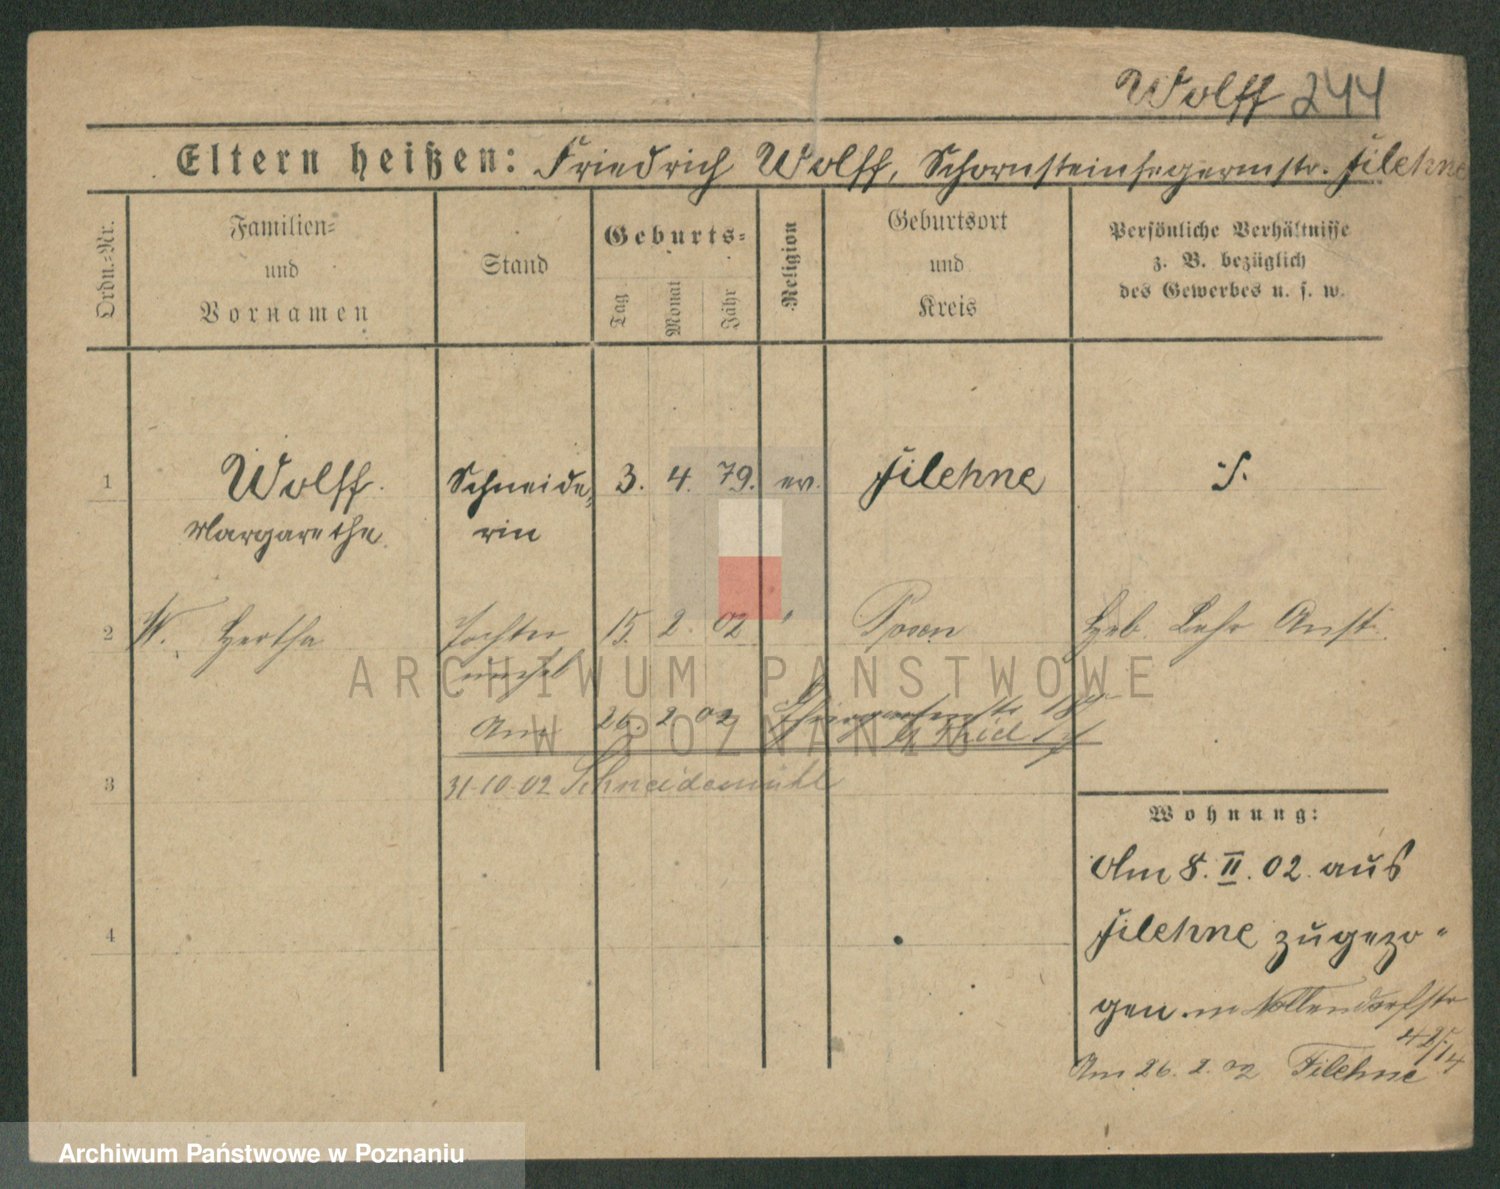 Wolff 244
Eltern heißen: Friedrich Wolff, Schornsteinfegermstr. Filehne
Ordn.-Nr.
Familien-
und
Vornamen
Stand
Geburts-
Tag
Monat
Jahr
Religion
Geburtsort
und
Kreis
Persönliche Verhältnisse
z. B. bezüglich
des Gewerbes u. s. w.
1 Wolff. Schneide- 3. 4. 79. ev. Filehne
Margarethe rin
2 W. Hertha Tochter 15. 2 02 " Posen Heb. Lehr Anst.
unehel
26. 2 02
3 31-10-02 Schneidemühl
4
Wohnung:
Am 8. II. 02. aus
Filehne zugezo-
gen. Nollendorfstr
Am 26. 2. 02 Filehne
ARCHIWUM PAŃSTWOWE
W POZNANIU
Archiwum Państwowe w Poznaniu